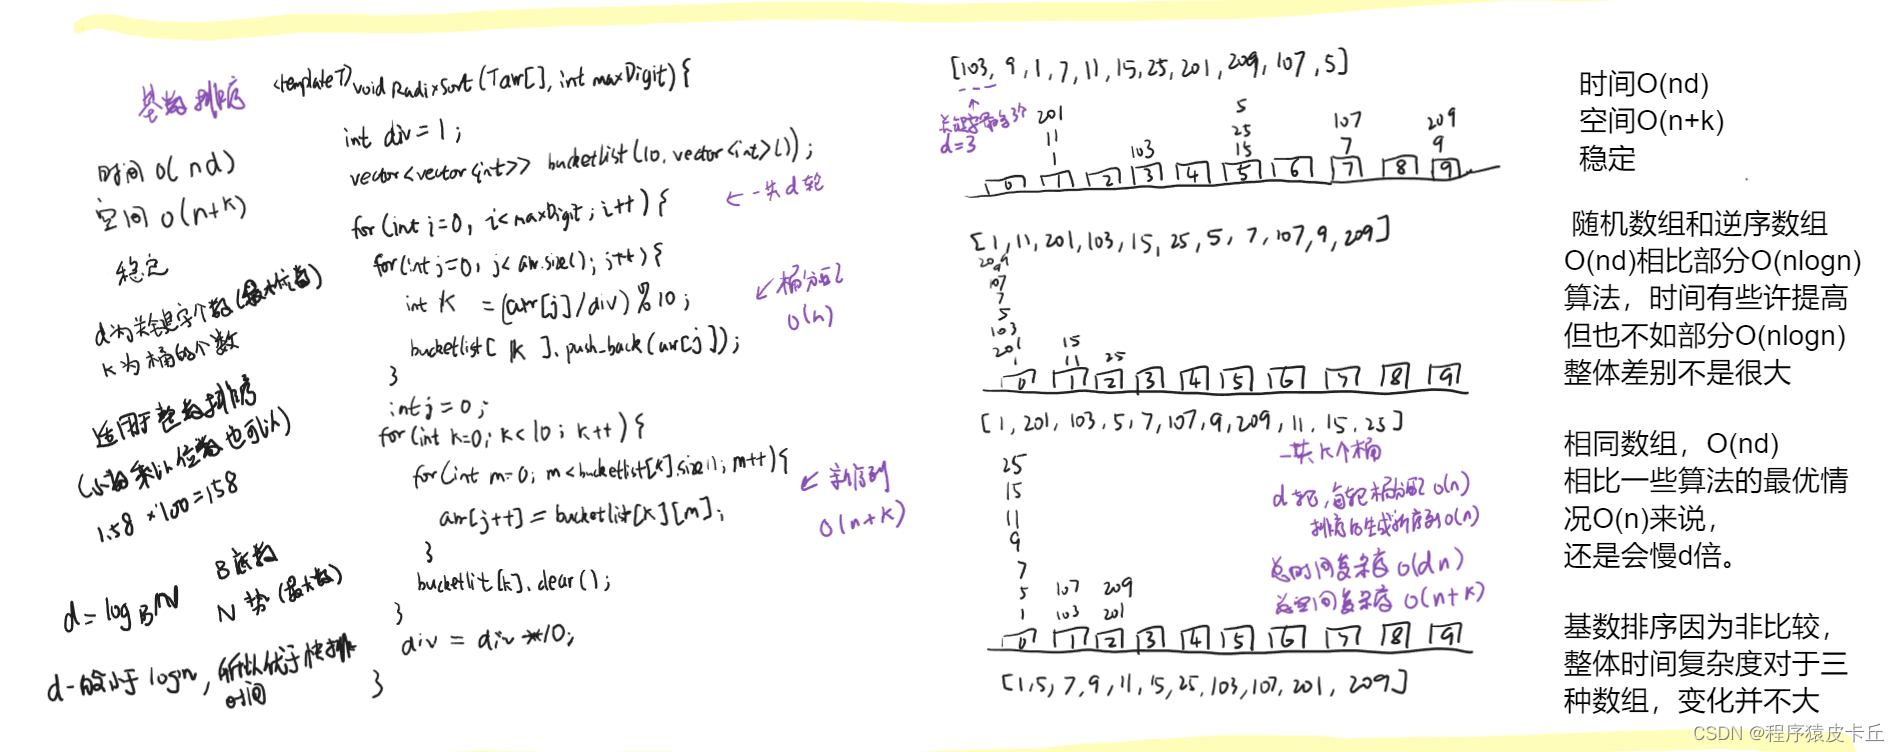 基数排序
时间 O(nd)
空间 O(n+k)
稳定
d为关键字个数(最大位数)
k为桶的个数
适用于整数排序
(小数乘以位数也可以)
1.58 × 100 = 158
d = log_B N
B 底数
N 势(最大数)
d一般小于logn, 所以优于快排
时间
<template T> void RadixSort (T arr[], int maxDigit) {
int div = 1;
vector<vector<int>> bucketlist(10, vector<int>());
for (int i=0, i<maxDigit; i++) {
← 一共d轮
for (int j=0, j< arr.size(); j++) {
int k = (arr[j]/div) % 10;
bucketlist[k].push_back(arr[j]);
← 桶分配
O(n)
}
int j = 0;
for (int k=0; k<10; k++) {
for (int m=0; m<bucketlist[k].size(); m++) {
arr[j++] = bucketlist[k][m];
← 新序列
O(n+k)
}
bucketlit[k].clear();
}
div = div * 10;
}
[103, 9, 1, 7, 11, 15, 25, 201, 209, 107, 5]
关键字最多3个
d=3
201 5 107 209
11 25 7 9
1 103 15
0 1 2 3 4 5 6 7 8 9
[1, 11, 201, 103, 15, 25, 5, 7, 107, 9, 209]
209
9
107
7
5
103
201 15
1 11 25
0 1 2 3 4 5 6 7 8 9
[1, 201, 103, 5, 7, 107, 9, 209, 11, 15, 25]
25
15
11
9
7
5 107 209
1 103 201
0 1 2 3 4 5 6 7 8 9
[1, 5, 7, 9, 11, 15, 25, 103, 107, 201, 209]
一共k个桶
d轮, 每轮桶分配 O(n)
排序后生成新序列O(n)
总时间复杂度 O(dn)
总空间复杂度 O(n+k)
时间O(nd)
空间O(n+k)
稳定
随机数组和逆序数组
O(nd)相比部分O(nlogn)
算法，时间有些许提高
但也不如部分O(nlogn)
整体差别不是很大
相同数组，O(nd)
相比一些算法的最优情
况O(n)来说，
还是会慢d倍。
基数排序因为非比较，
整体时间复杂度对于三
种数组，变化并不大
CSDN @程序猿皮卡丘